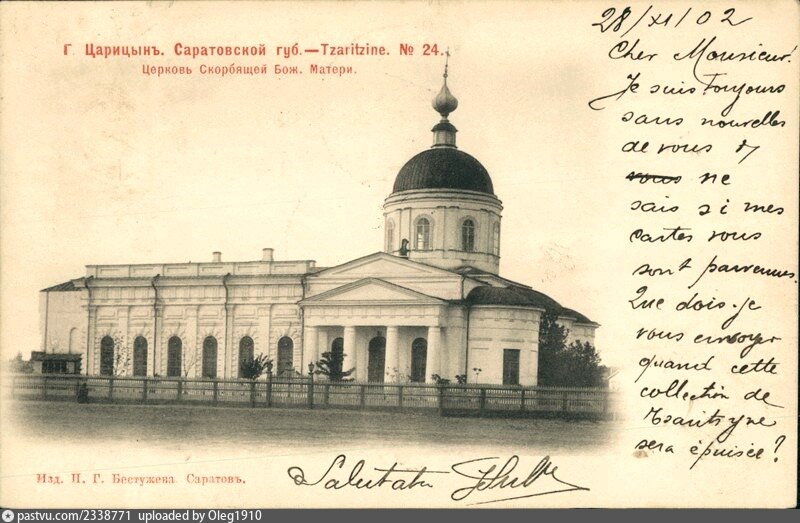 Г. Царицынъ. Саратовской губ.—Tzaritzine. № 24.
Церковь Скорбящей Бож. Матери.
28/XI/02
Cher Monsieur!
Je suis toujours
sans nouvelles
de vous &
vous ne
sais si mes
cartes vous
sont parvenues.
Que dois-je
vous envoyer
quand cette
collection de
Tzaritzyne
sera épuisée?
Изд. П. Г. Бестужева. Саратовъ.
Salutatu
pastvu.com/2338771 uploaded by Oleg1910